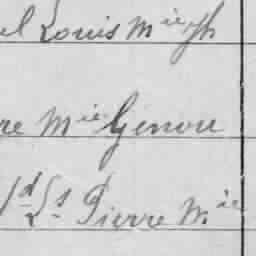 el Louis Mie Jh
re Mie Genou
1d Ls Pierre Mie